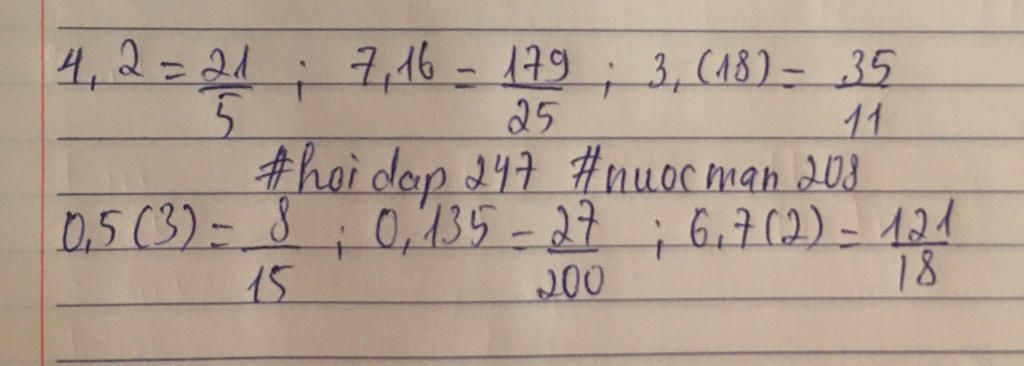 4,2 = 21/5 ; 7,16 = 179/25 ; 3,(18) = 35/11
#hoidap 247 #nuocman 208
0,5(3) = 8/15 ; 0,135 = 27/200 ; 6,7(2) = 121/18